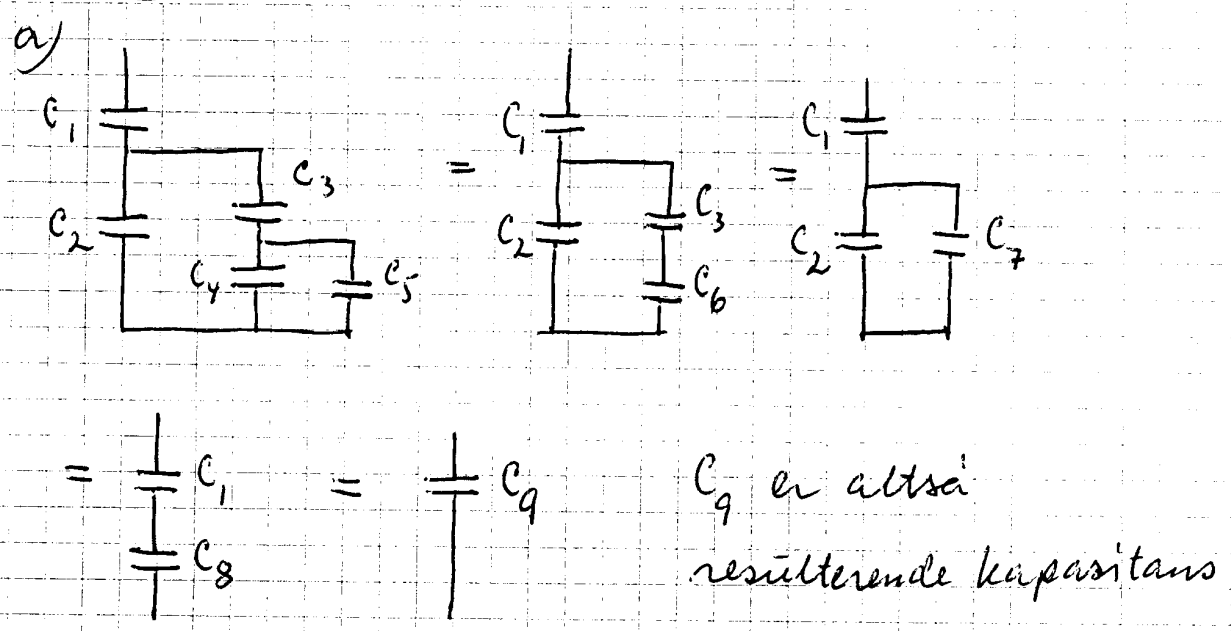 a)
C₁ C₃ C₂ C₄ C₅ = C₁ C₃ C₂ C₆ = C₁ C₂ C₇
= C₁ C₈ = C₉ C₉ er altså
resulterende kapasitans